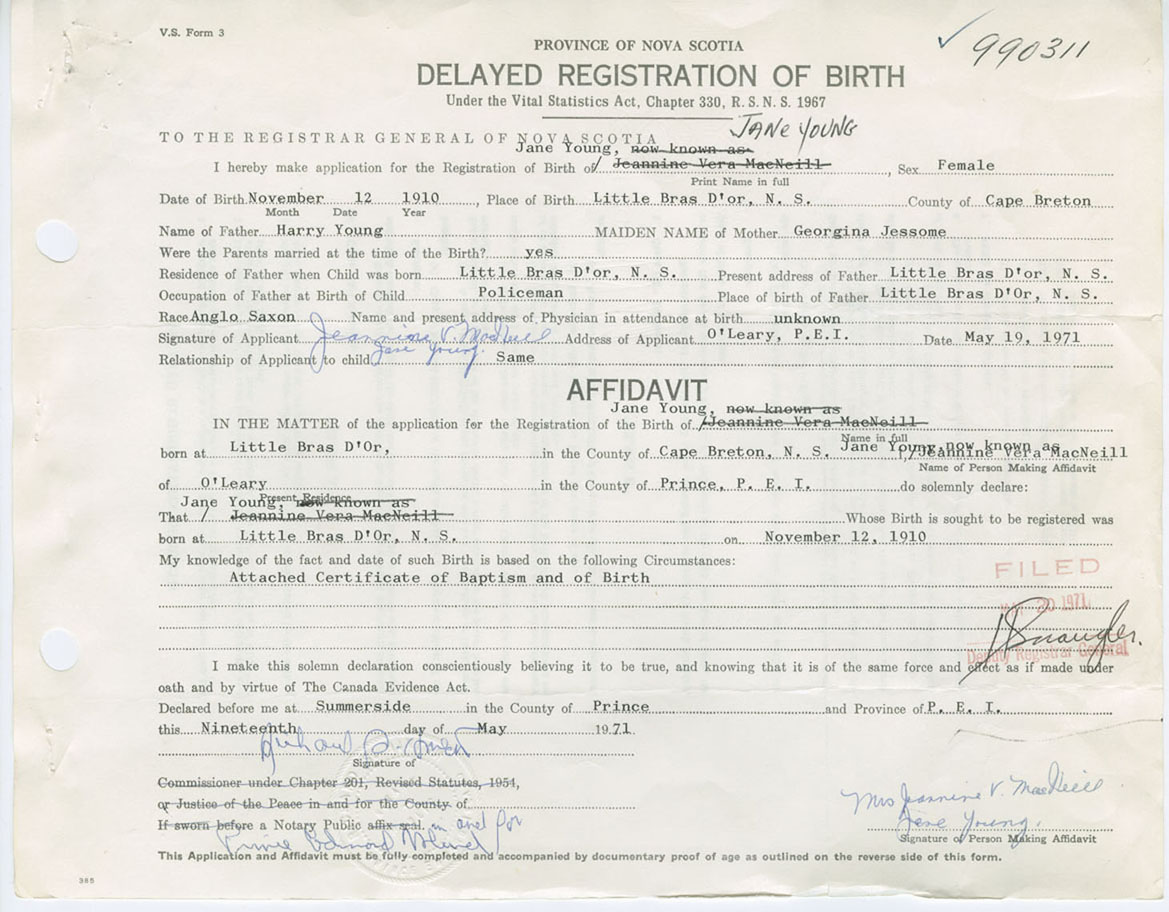 V.S. Form 3
990311
PROVINCE OF NOVA SCOTIA
DELAYED REGISTRATION OF BIRTH
Under the Vital Statistics Act, Chapter 330, R. S. N. S. 1967
JANE YOUNG
TO THE REGISTRAR GENERAL OF NOVA SCOTIA
Jane Young, now known as
I hereby make application for the Registration of Birth of / Jeannine Vera MacNeill, Sex Female
Print Name in full
Date of Birth November 12 1910, Place of Birth Little Bras D'or, N. S. County of Cape Breton
Month Date Year
Name of Father Harry Young MAIDEN NAME of Mother Georgina Jessome
Were the Parents married at the time of the Birth? yes
Residence of Father when Child was born Little Bras D'or, N. S. Present address of Father Little Bras D'or, N. S.
Occupation of Father at Birth of Child Policeman Place of birth of Father Little Bras D'Or, N. S.
Race Anglo Saxon Name and present address of Physician in attendance at birth unknown
Signature of Applicant Jeannine V. MacNeill Address of Applicant O'Leary, P.E.I. Date May 19, 1971
Jane Young.
Relationship of Applicant to child Same
AFFIDAVIT
Jane Young, now known as
IN THE MATTER of the application for the Registration of the Birth of /Jeannine Vera MacNeill
Name in full
born at Little Bras D'Or, in the County of Cape Breton, N. S. Jane Young, now known as /Jeannine Vera MacNeill
Name of Person Making Affidavit
of O'Leary in the County of Prince, P. E. I. do solemnly declare:
Present Residence
Jane Young, now known as
That / Jeannine Vera MacNeill Whose Birth is sought to be registered was
born at Little Bras D'Or, N. S. on November 12, 1910
My knowledge of the fact and date of such Birth is based on the following Circumstances:
Attached Certificate of Baptism and of Birth
FILED
20 1971
Deputy Registrar General
I make this solemn declaration conscientiously believing it to be true, and knowing that it is of the same force and effect as if made under
oath and by virtue of The Canada Evidence Act.
Declared before me at Summerside in the County of Prince and Province of P. E. I.
this Nineteenth day of May 1971
Signature of
Commissioner under Chapter 201, Revised Statutes, 1954,
or Justice of the Peace in and for the County of
If sworn before a Notary Public affix seal, in and for
Prince Edward Island
Mrs Jeannine V. MacNeill
Jane Young.
Signature of Person Making Affidavit
This Application and Affidavit must be fully completed and accompanied by documentary proof of age as outlined on the reverse side of this form.
385